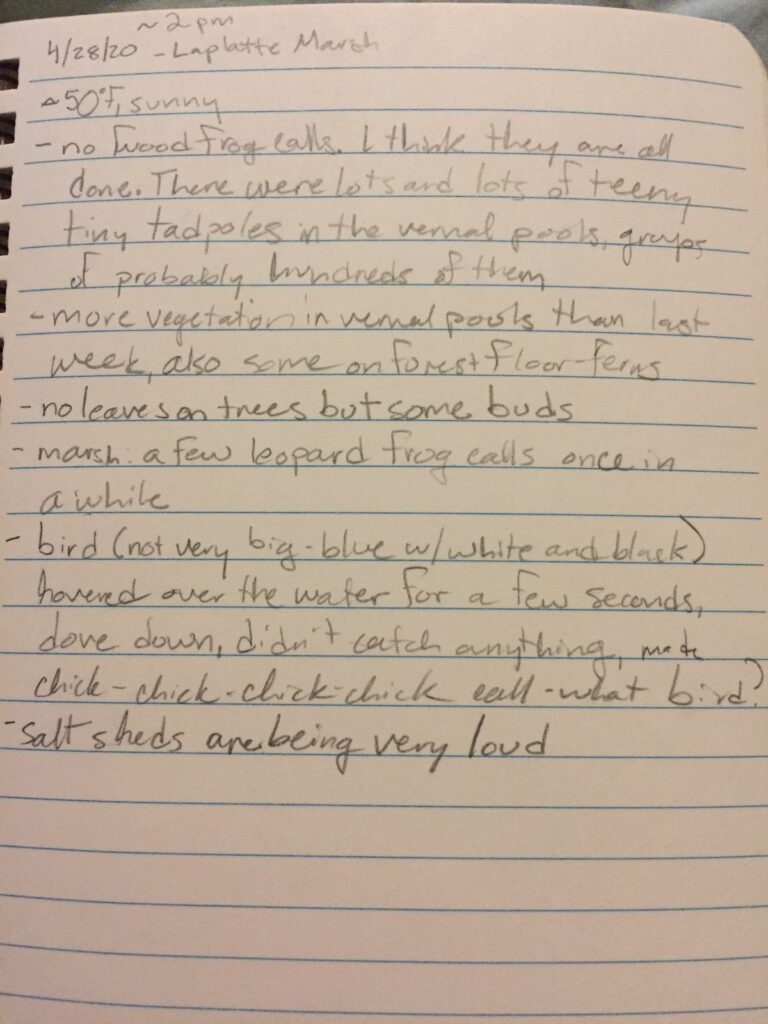 ~ 2 pm
4/28/20 - Laplatte Marsh
~50°F, sunny
- no wood frog calls. I think they are all
done. There were lots and lots of teeny
tiny tadpoles in the vernal pools, groups
of probably hundreds of them
- more vegetation in vernal pools than last
week, also some on forest floor - ferns
- no leaves on trees but some buds
- marsh: a few leopard frog calls once in
a while
- bird (not very big - blue w/ white and black)
hovered over the water for a few seconds,
dove down, didn't catch anything, made
chick-chick-chick-chick call - what bird?
- salt sheds are being very loud